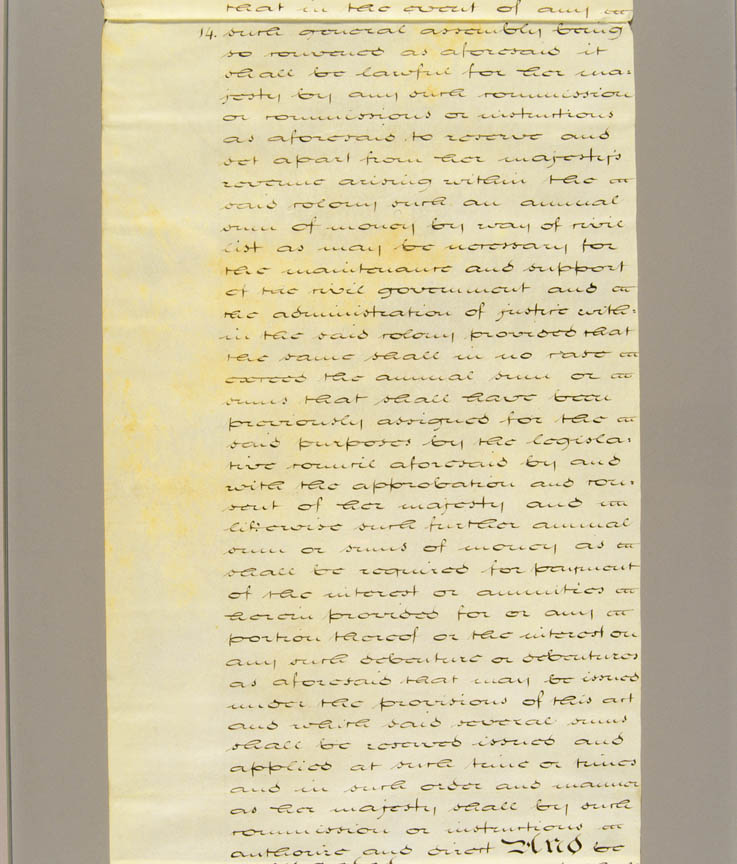 that in the event of any
14. such general assembly being
so convened as aforesaid it
shall be lawful for her ma:
jesty by any such commission
or commissions or instructions
as aforesaid to reserve and
set apart from her majesty's
revenue arising within the
said colony such an annual
sum of money by way of civil
list as may be necessary for
the maintenance and support
of the civil government and
the administration of justice with:
in the said colony provided that
the same shall in no case
exceed the annual sum or
sums that shall have been
previously assigned for the
said purposes by the legisla:
tive council aforesaid by and
with the approbation and con:
sent of her majesty and
likewise such further annual
sum or sums of money as
shall be required for payment
of the interest or annuities
herein provided for or any
portion thereof or the interest on
any such debenture or debentures
as aforesaid that may be issued
under the provisions of this act
and which said several sums
shall be reserved issued and
applied at such time or times
and in such order and manner
as her majesty shall by such
commission or instructions
authorize and direct And be